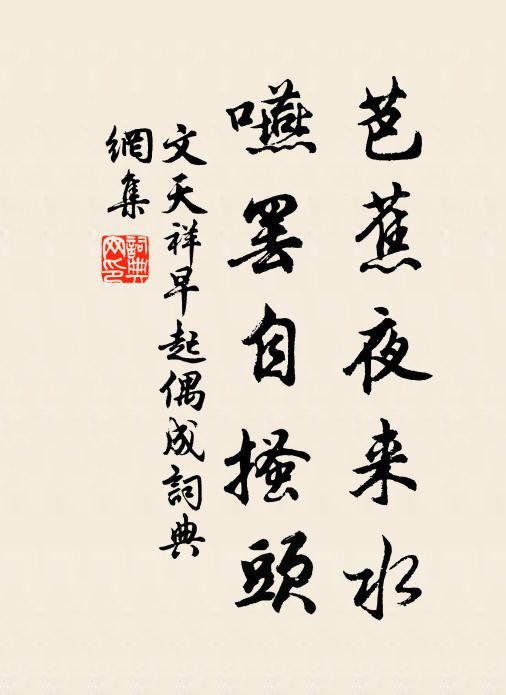 芭蕉夜来水
嚥罢自搔頭
文天祥早起偶成詞典
網集
詞典
网印